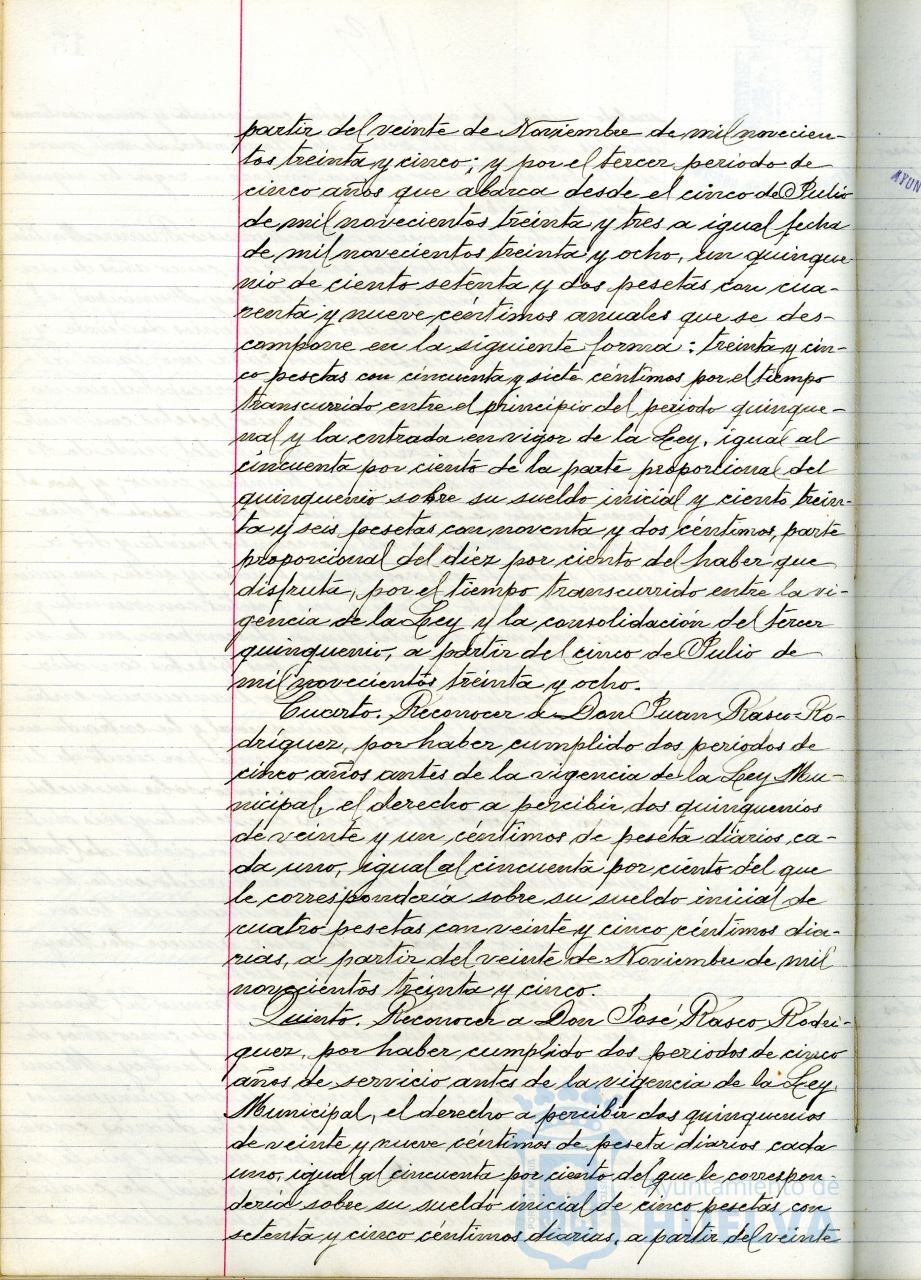 partir del veinte de Noviembre de mil novecien-
tos treinta y cinco; y por el tercer periodo de
cinco años que abarca desde el cinco de Julio
de mil novecientos treinta y tres a igual fecha
de mil novecientos treinta y ocho, un quinque-
nio de ciento setenta y dos pesetas con cua-
renta y nueve céntimos anuales que se des-
compone en la siguiente forma: treinta y cin-
co pesetas con cincuenta y siete céntimos por el tiempo
transcurrido entre el principio del periodo quinque-
nal y la entrada en vigor de la Ley, igual al
cincuenta por ciento de la parte proporcional del
quinquenio sobre su sueldo inicial y ciento trein-
ta y seis pesetas con noventa y dos céntimos, parte
proporcional del diéz por ciento del haber que
disfruta, por el tiempo transcurrido entre la vi-
gencia de la Ley y la consolidación del tercer
quinquenio, a partir del cinco de Julio de
mil novecientos treinta y ocho.
Cuarto. Reconocer a Don Juan Rasco Ro-
dríguez, por haber cumplido dos periodos de
cinco años antes de la vigencia de la Ley Mu-
nicipal, el derecho a percibir dos quinquenios
de veinte y un céntimos de peseta diarios ca-
da uno, igual al cincuenta por ciento del que
le correspondería sobre su sueldo inicial de
cuatro pesetas con veinte y cinco céntimos dia-
rias, a partir del veinte de Noviembre de mil
novecientos treinta y cinco.
Quinto. Reconocer a Don José Rasco Rodri-
guez, por haber cumplido dos periodos de cinco
años de servicio antes de la vigencia de la Ley
Municipal, el derecho a percibir dos quinquenios
de veinte y nueve céntimos de peseta diarios cada
uno, igual al cincuenta por ciento del que le correspon
dería sobre su sueldo inicial de cinco pesetas con
setenta y cinco céntimos diarias, a partir del veinte
AYUN
Ayuntamiento de
HUELVA